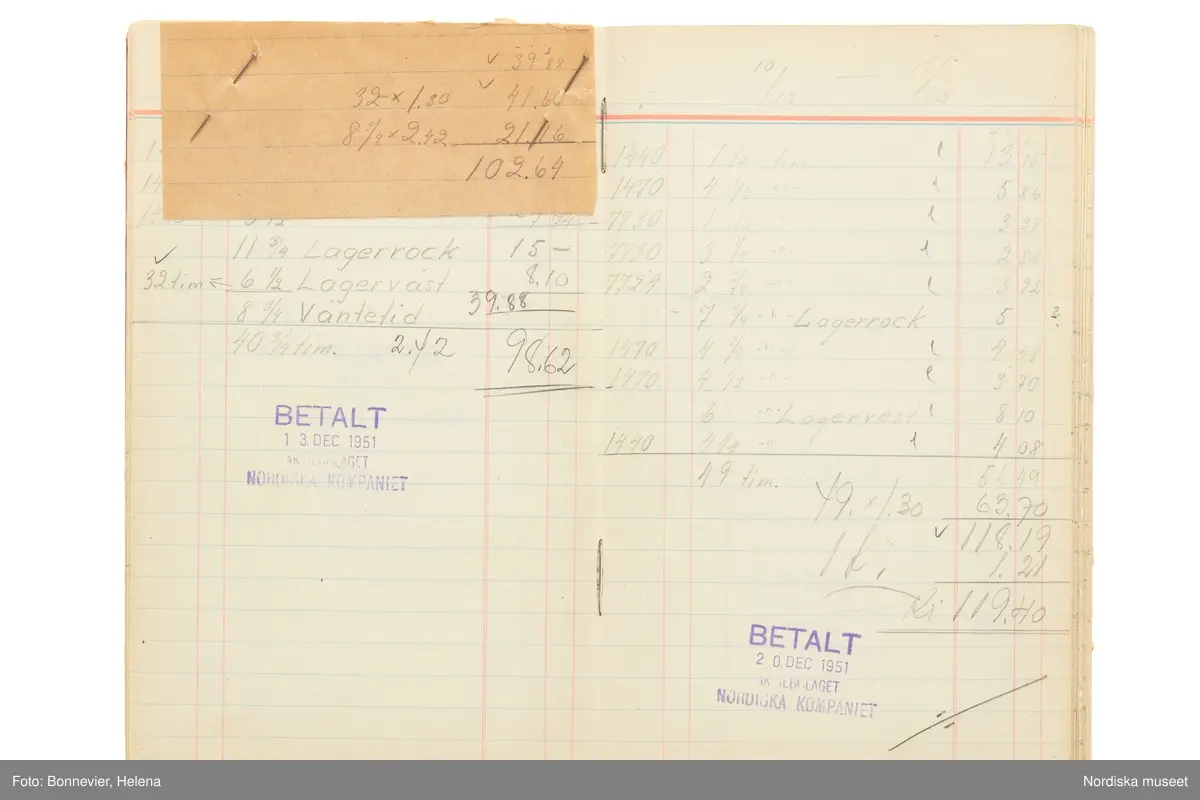 39.88
32 x 1.30 41.60
8 3/4 x 2.42 21.16
102.64
1 74
11 3/4 Lagerrock 15 –
32 tim = 6 1/2 Lagerväst 8.10
39.88
8 3/4 Väntetid
40 3/4 tim. 2.42 98.62
BETALT
13. DEC 1951
AKTIEBOLAGET
NORDISKA KOMPANIET
10/12 —
1440 7 1/2 tim 13
1470 4 5 86
7790 1 1/2 3 38
7790 3 2 88
7729 2 3 92
7 Lagerrock 5
1470 4 4 48
1470 4 1/2 3 70
6 Lagervest 8 10
1440 4 4 08
49 tim. 49
49. x 1.30 63.70
118.19
1.21
Kr 119.40
BETALT
20. DEC 1951
AKTIEBOLAGET
NORDISKA KOMPANIET
Foto: Bonnevier, Helena
Nordiska museet